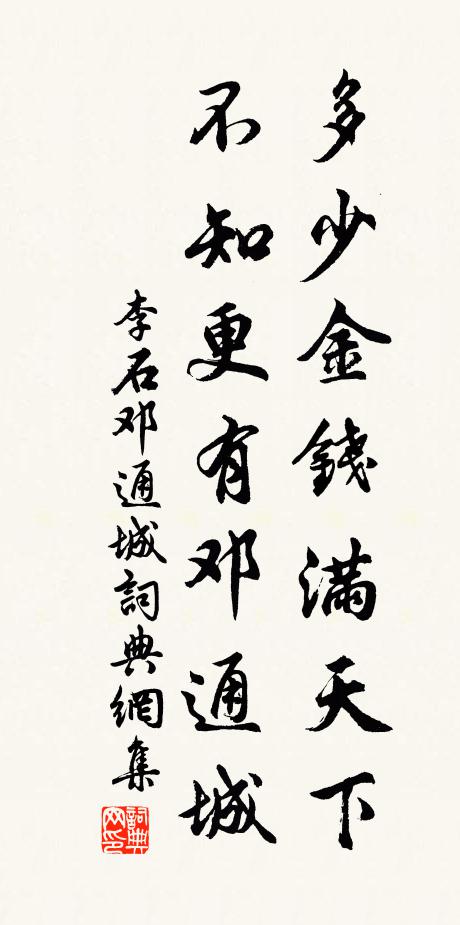 多少金錢滿天下
不知更有邓通城
李石邓通城詞典網集
詞典网印